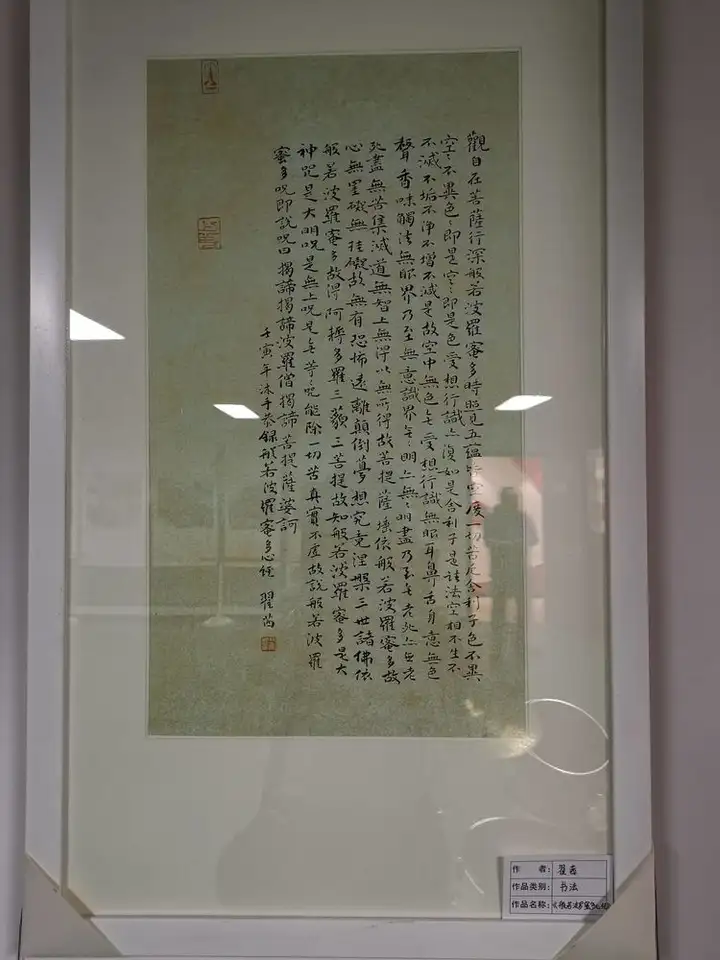 觀自在菩薩行深般若波羅蜜多時照見五蘊皆空度一切苦厄舍利子色不異
空〻不異色〻即是空〻即是色受想行識亦復如是舍利子是諸法空相不生不
不滅不垢不淨不增不減是故空中無色无受想行識無眼耳鼻舌身意無色
聲香味觸法無眼界乃至無意識界无〻明亦無〻明盡乃至无老死亦無老
死盡無苦集滅道無智上無得以無所得故菩提薩埵依般若波羅蜜多故
心無罣礙無挂礙故無有恐怖遠離顛倒夢想究竟涅槃三世諸佛依
般若波羅蜜多故得阿耨多羅三藐三菩提故知般若波羅蜜多是大
神咒是大明咒是無上咒是无等〻咒能除一切苦真實不虛故說般若波羅
蜜多咒即說咒曰揭諦揭諦波羅僧揭諦菩提薩婆訶
壬寅年沐手恭録般若波羅蜜多心經 翟茜
作 者: 翟茜
作品类别: 书法
作品名称: